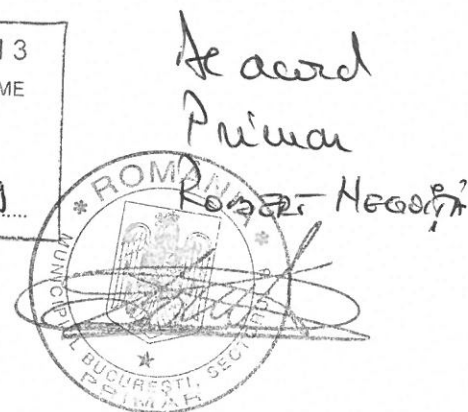 13
ME
De acord
Primar
ROBERT NEGOIȚĂ
* ROMANIA *
MUNICIPIUL BUCUREȘTI, SECTORUL
PRIMAR